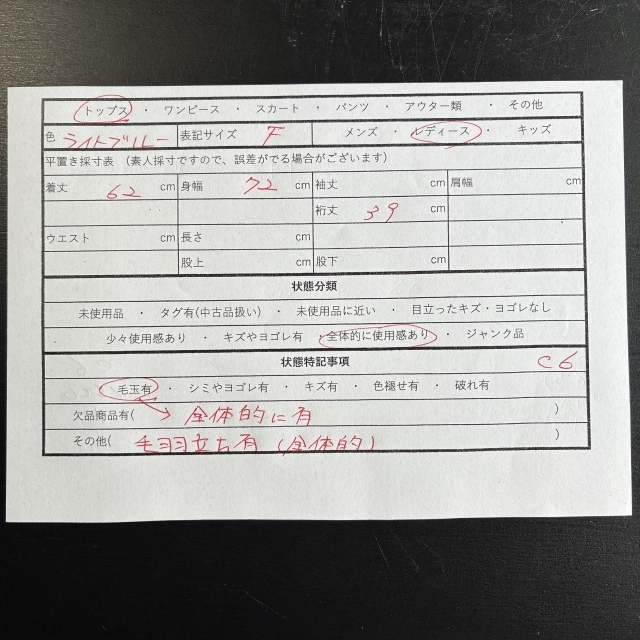 トップス ・ ワンピース ・ スカート ・ パンツ ・ アウター類 ・ その他
色 ライトブルー 表記サイズ F メンズ ・ レディース ・ キッズ
平置き採寸表 (素人採寸ですので、誤差がでる場合がございます)
着丈 62 cm 身幅 72 cm 袖丈 cm 肩幅 cm
裄丈 39 cm
ウエスト cm 長さ cm
股上 cm 股下 cm
状態分類
未使用品 ・ タグ有(中古品扱い) ・ 未使用品に近い ・ 目立ったキズ・ヨゴレなし
少々使用感あり ・ キズやヨゴレ有 ・ 全体的に使用感あり ・ ジャンク品
状態特記事項 C6
毛玉有 ・ シミやヨゴレ有 ・ キズ有 ・ 色褪せ有 ・ 破れ有
欠品商品有( 全体的に有 )
その他( 毛羽立ち有 (全体的) )